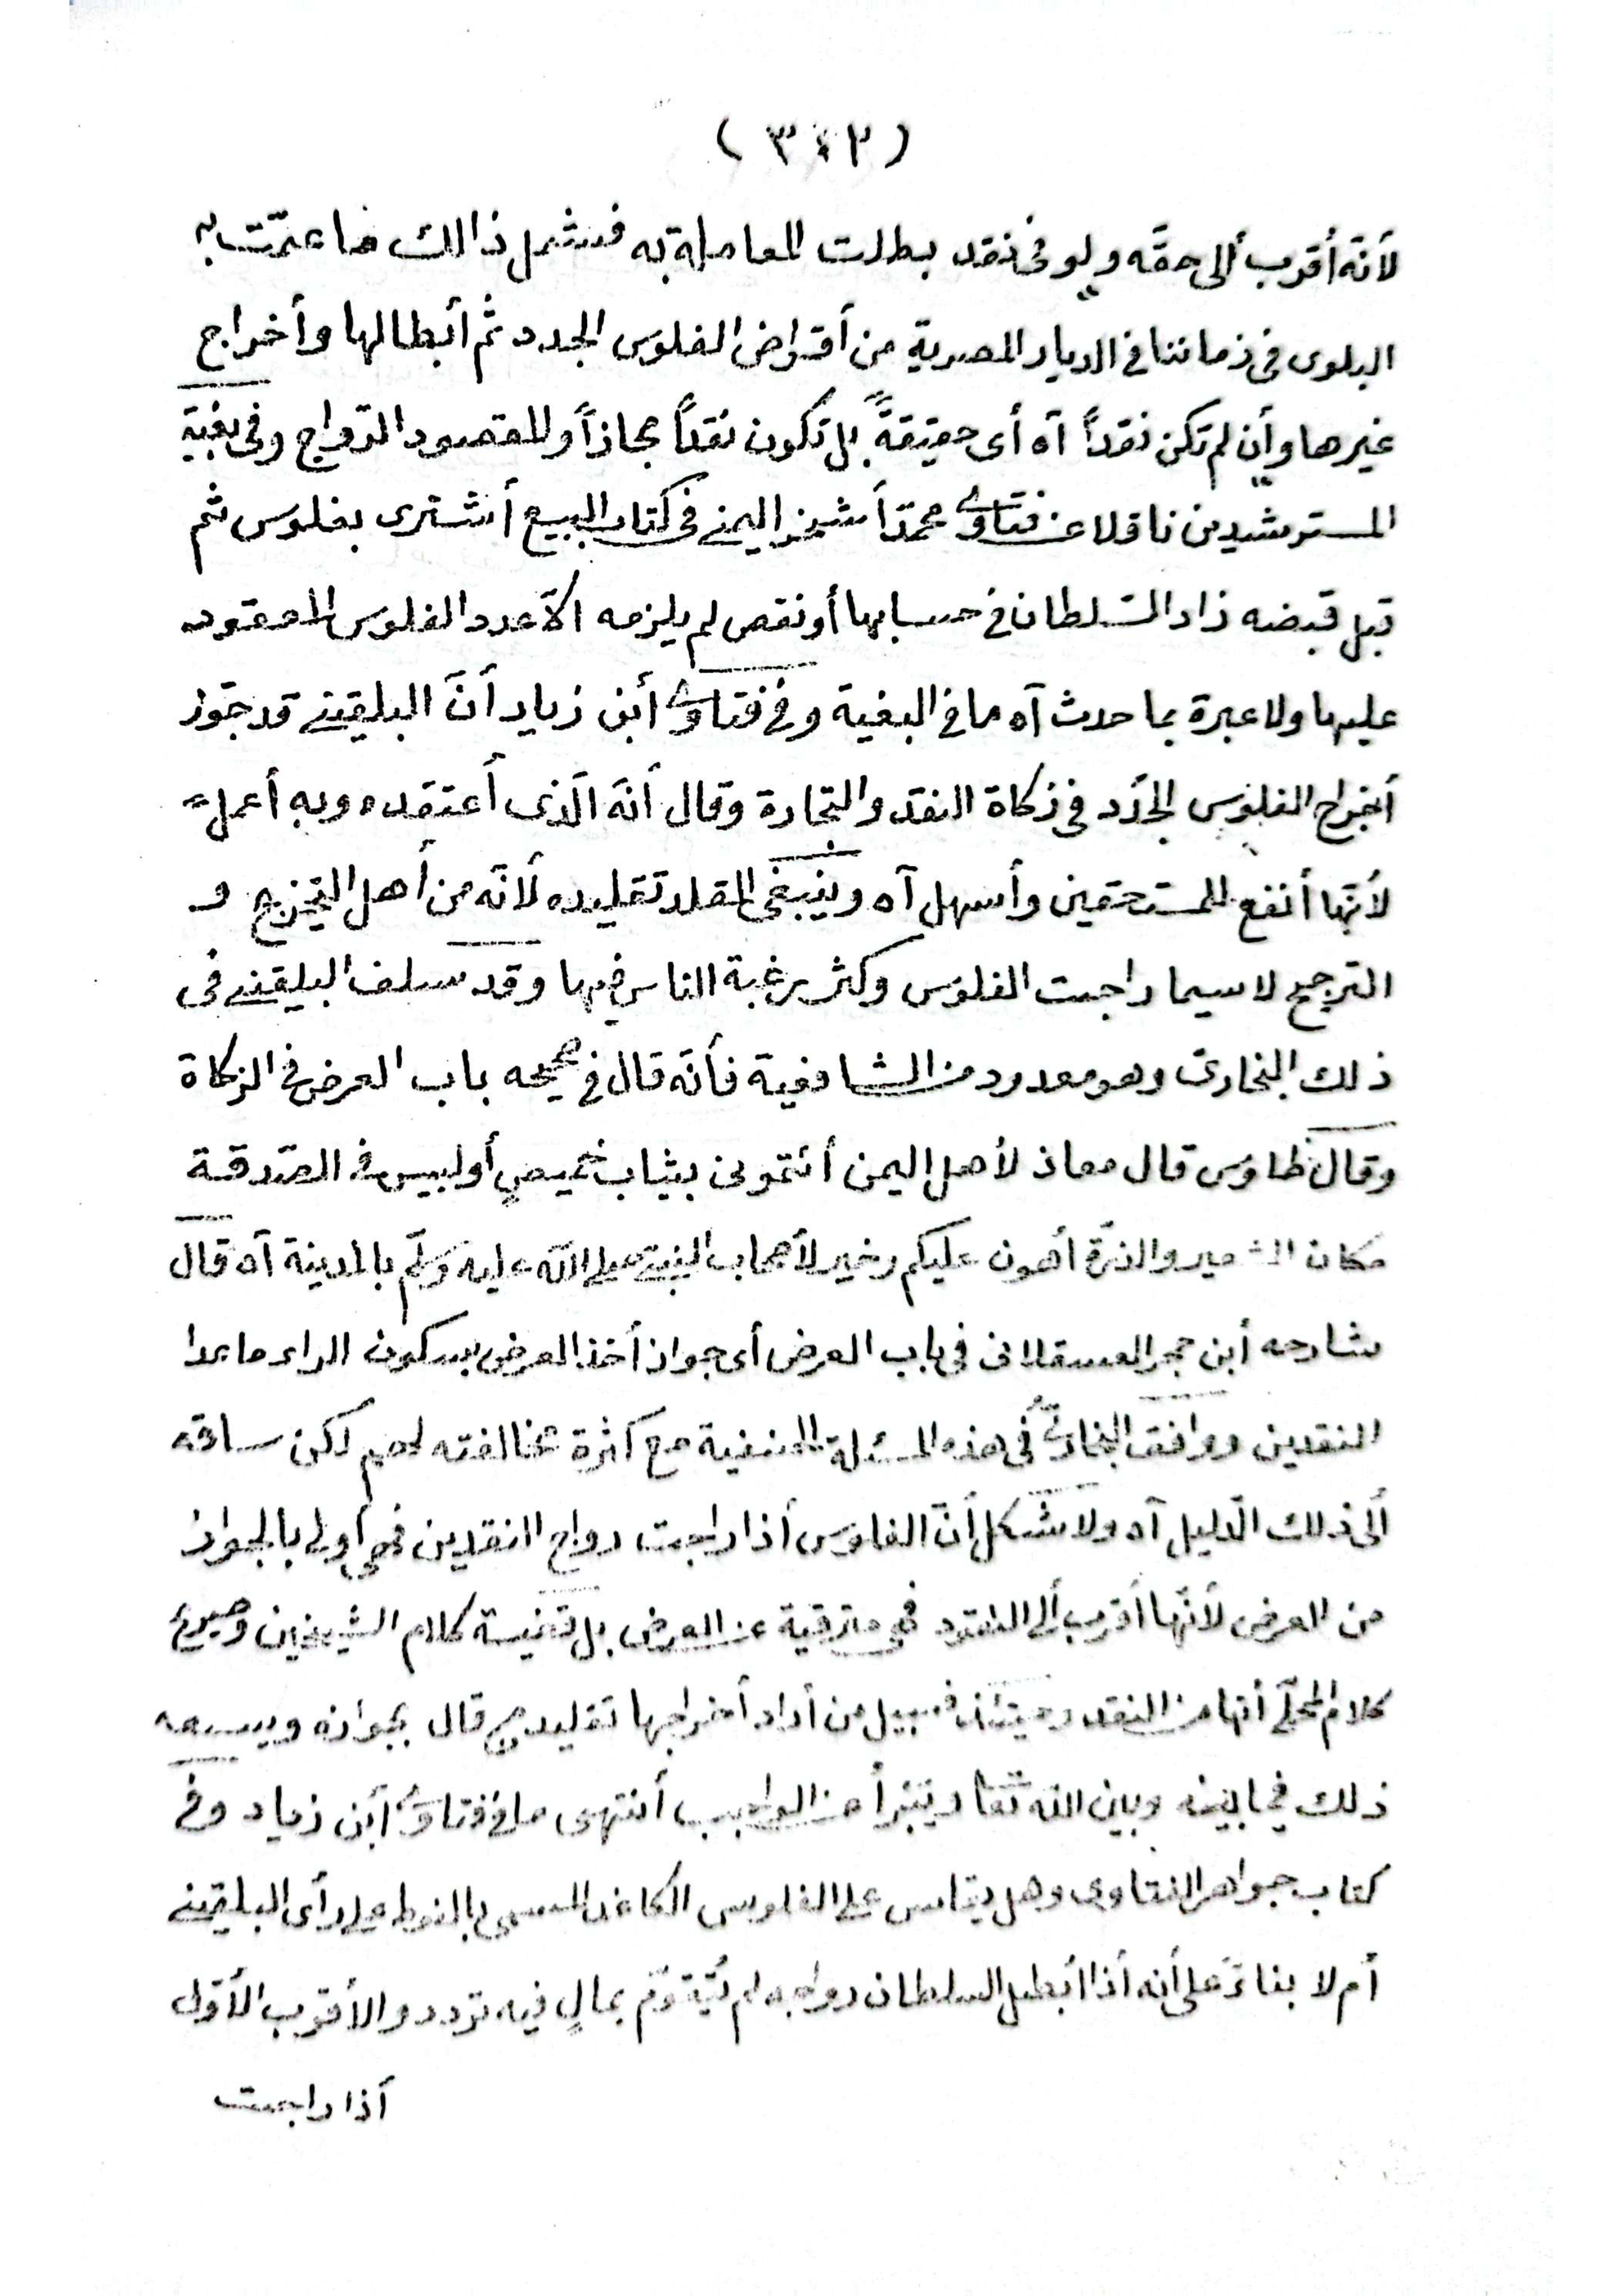 ( ٣٤٢ )
لأنّه أقرب ألى حقّه ولو فى نقد بطلت المعاملة به فشمل ذالك ما عمّت به
البلوى فى زماننا فى الديار المصرية من أقتراض الفلوس الجدد ثم أبطالها وأخراج
غيرها وأن لم تكن نقداً آه أى حقيقةً بل تكون نقداً مجازاً والمقصود الرّواج وفى بغية
المسترشدين ناقلا عن فتاوى محمّد أشخر اليمنى فى كتاب البيع أشترى بفلوس ثم
قبل قبضه زاد السّلطان فى حسابها أو نقص لم يلزمه الاّ عدد الفلوس المعقود
عليها ولا عبرة بما حدث آه ما فى البغية وفى فتاوى أبن زياد أنّ البلقينى قد جوّز
أخراج الفلوس الجدد فى زكاة النقد والتجارة وقال أنّه الّذى أعتقده وبه أعمل
لأنّها أنفع للمستحقين وأسهل آه وينبغى للمقلد تقليده لأنّه من أهل التخريج و
الترجيح لا سيما راجت الفلوس وكثر رغبة الناس فيها وقد سلف البلقينى فى
ذلك البخارىّ وهو معدود من الشافعية فأنّه قال فى صحيحه باب العرض فى الزكاة
وقال طاوس قال معاذ لأهل اليمن أئتونى بثياب خميصٍ أو لبيس فى الصّدقة
مكان الشعير والذرّة أهون عليكم وخير لأصحاب النبىّ صلى الله عليه وسلّم بالمدينة آه قال
شارحه أبن حجر العسقلانى فى باب العرض أى جواز أخذ العرض بسكون الراء ما عدا
النقدين ووافق البخارىّ فى هذه المسئلة الحنفية مع كثرة مخالفته لهم لكن ساقه
ألى ذلك الدّليل آه ولا شكل أنّ الفلوس أذا راجت رواج النقدين فهى أولى بالجواز
من العرض لأنّها أقرب ألى النقود فهى مترقية عن العرض بل كلام الشيخين وصريح
كلام المحلّى أنها من النقد وحينئذ فسبيل من أراد أخراجها تقليد من قال بجوازه ويسعه
ذلك فيما بينه وبين الله تعا ويتبرأ من الواجب أنتهى ما فى فتاوى أبن زياد وفى
كتاب جواهر الفتاوى وهل يقاس على الفلوس الكاغد المسمى بالنوط على رأى البلقينى
أم لا بناءً على أنه أذا أبطل السلطان رواجه لم يتقوّم بمالٍ فيه تردد والأقرب الأوّل
أذا راجت